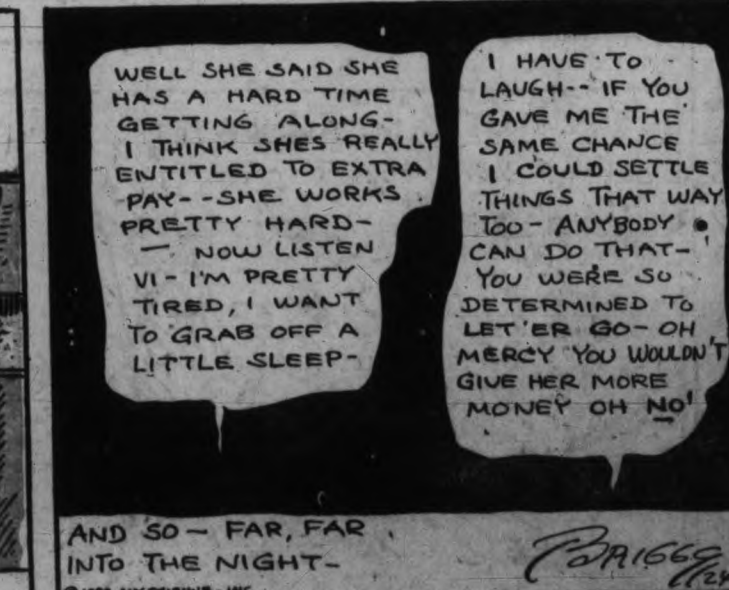 WELL SHE SAID SHE
HAS A HARD TIME
GETTING ALONG-
I THINK SHES REALLY
ENTITLED TO EXTRA
PAY--SHE WORKS
PRETTY HARD-
— NOW LISTEN
VI-I'M PRETTY
TIRED, I WANT
TO GRAB OFF A
LITTLE SLEEP-
I HAVE TO
LAUGH--IF YOU
GAVE ME THE
SAME CHANCE
I COULD SETTLE
THINGS THAT WAY
TOO-ANYBODY
CAN DO THAT-
YOU WERE SO
DETERMINED TO
LET 'ER GO-OH
MERCY YOU WOULDN'T
GIVE HER MORE
MONEY OH NO!
AND SO — FAR, FAR
INTO THE NIGHT-
BRIGGS